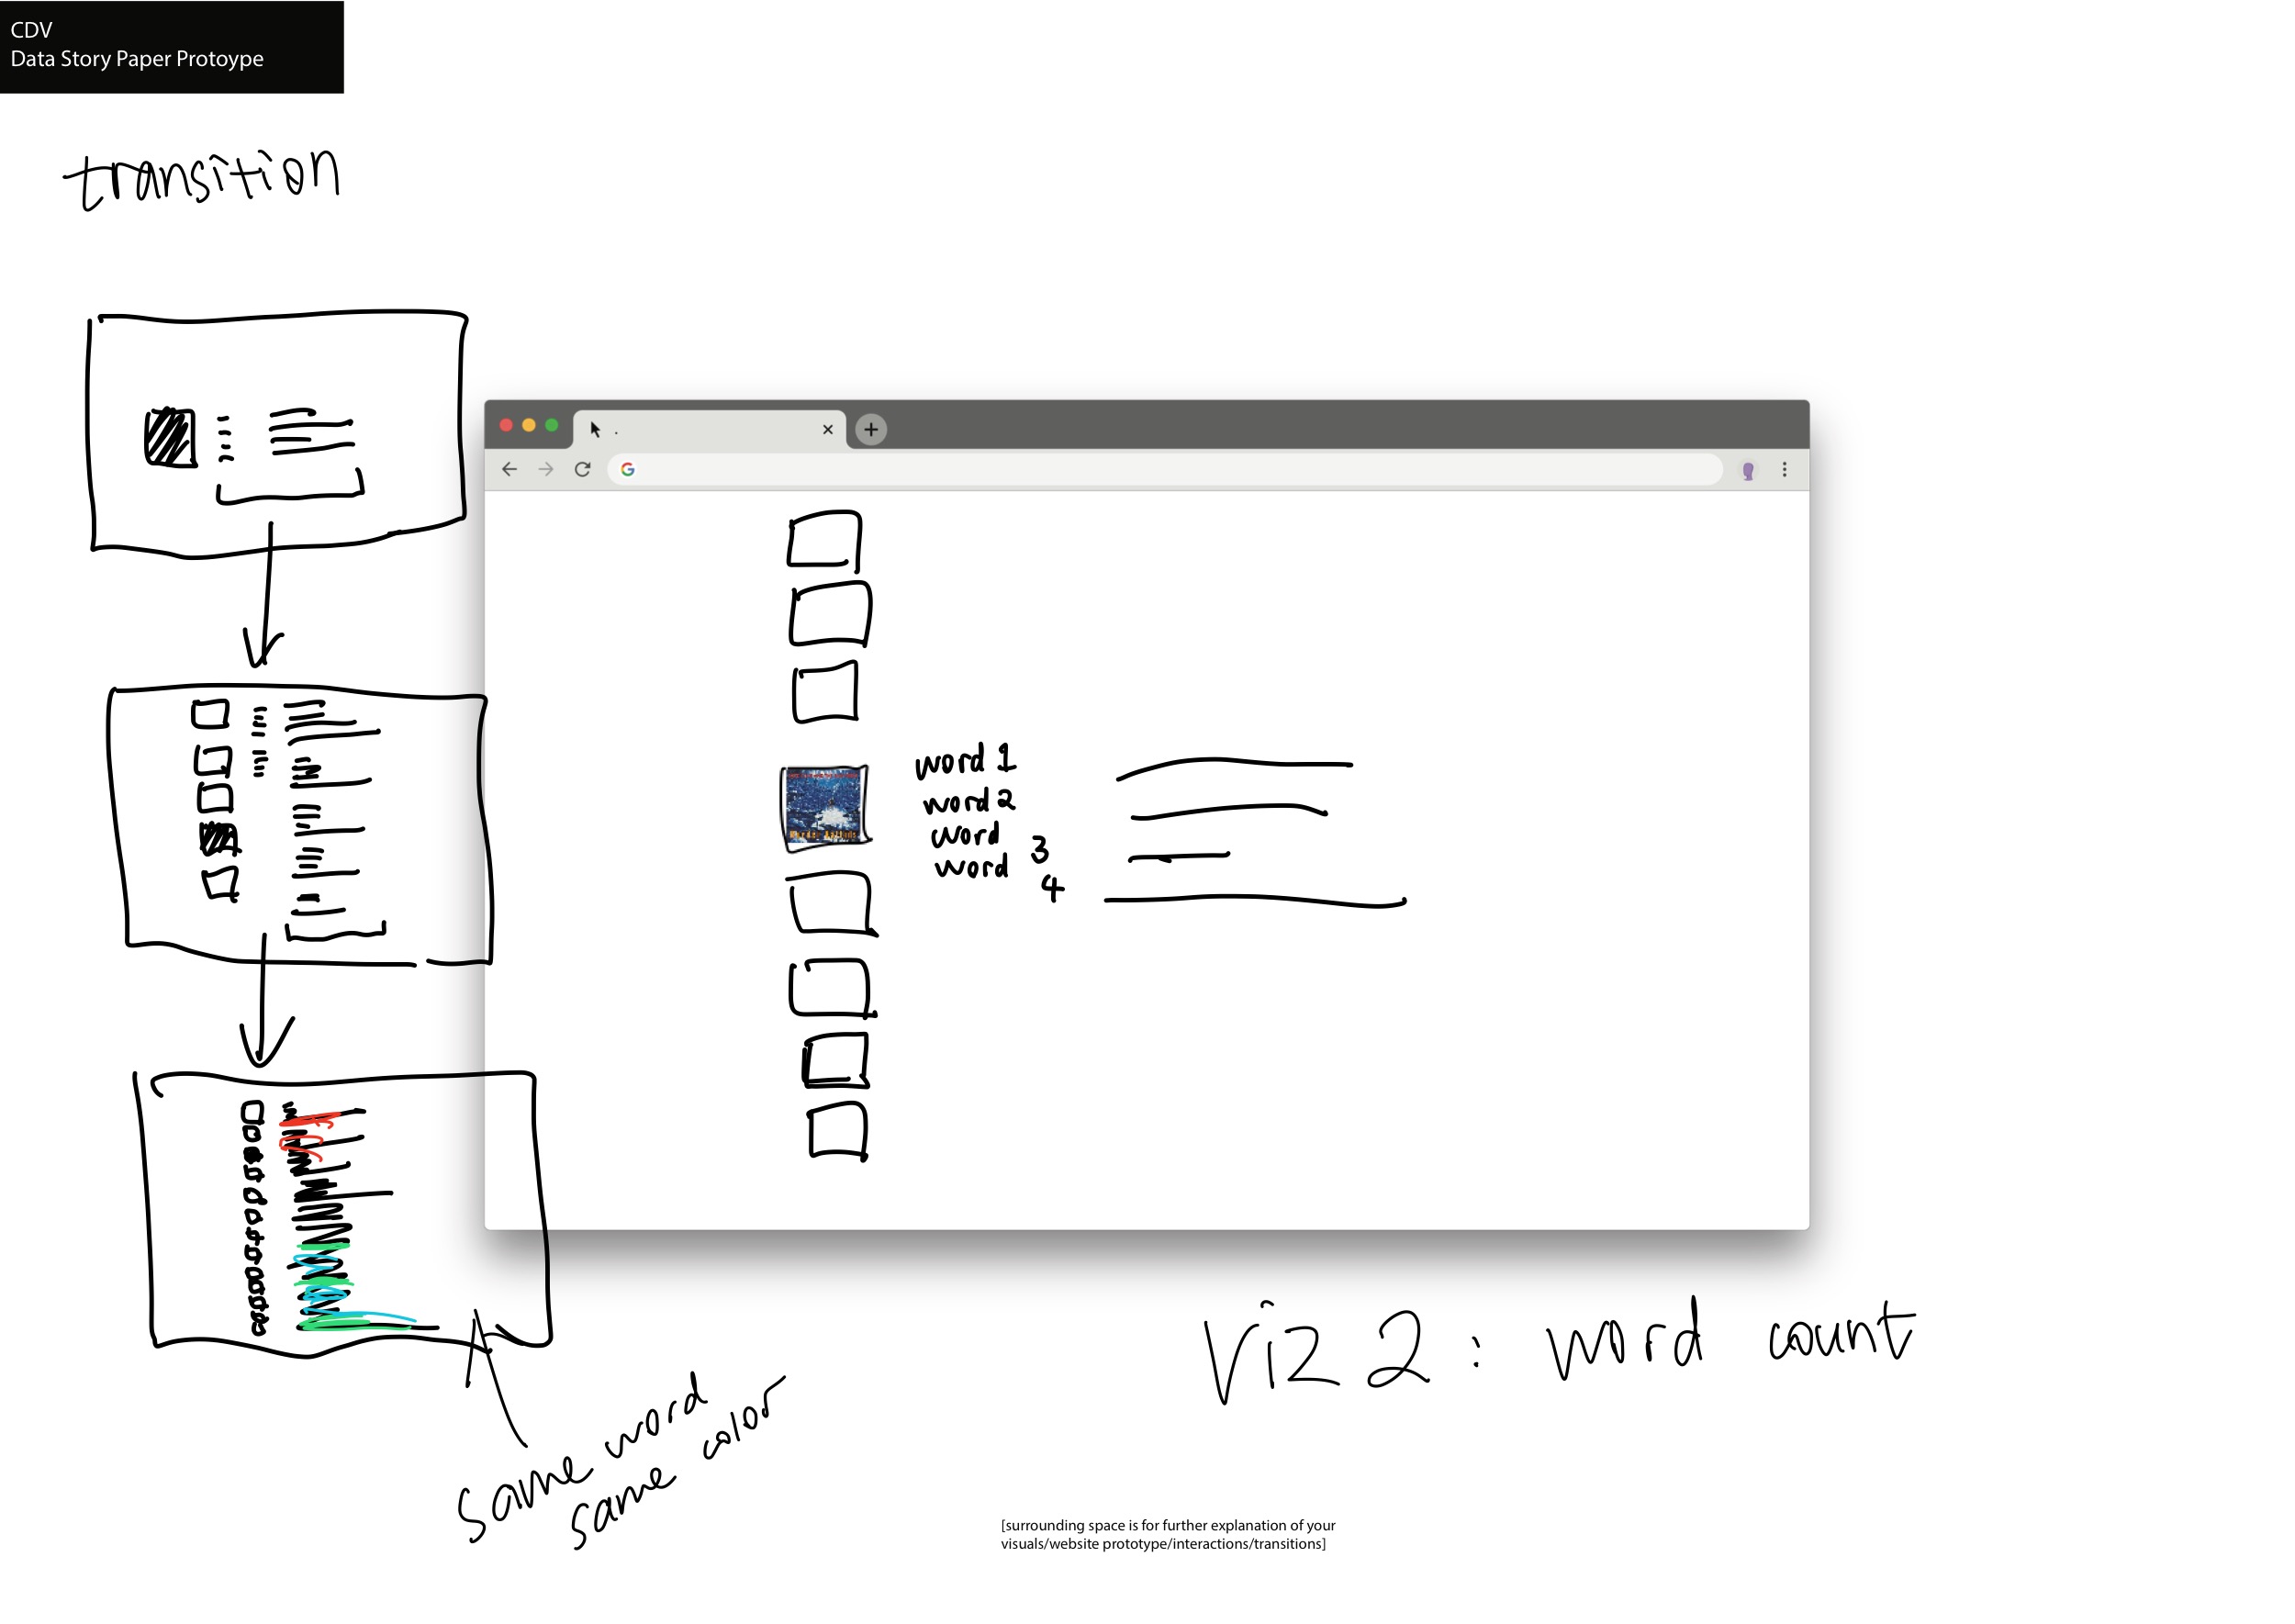 CDV
Data Story Paper Protoype
transition
word 1
word 2
word 3
word 4
Viz 2: word count
same word
same color
[surrounding space is for further explanation of your
visuals/website prototype/interactions/transitions]